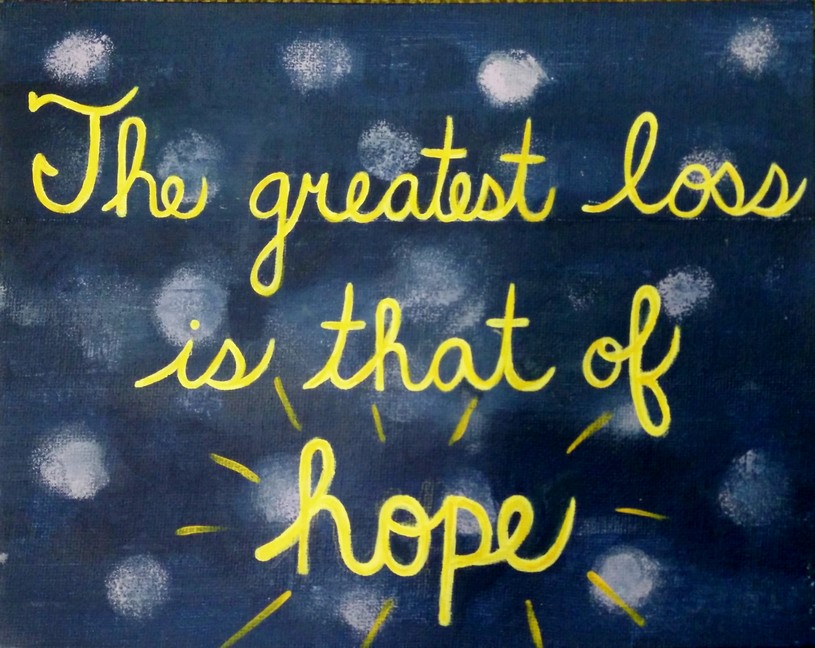 The greatest loss
is that of
hope